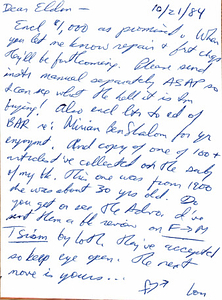 Dear Eldon — 10/21/84
Encl $1,000 as promised. When
you let me know repair & frt chgs
they'll be forthcoming. Please send
instr manual separately ASAP so
I can see what the hell it is I'm
buying! Also encl ltr to ed of
BAR re: Miriam BenShalom for yr
enjoymt. And copy of one of 100+
articles I've collected on the
of my bk. This one was from 1900
she was about 30 yrs old. Do
you get or see the Advo. I've
sent them a bk review on F→M
TSism by Loth they've accepted
so keep eye open. The next
move is yours...
Lou